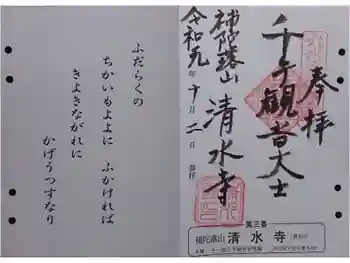 奉拝
千手観音大士
補陀落山 清水寺
令和元年十月二日 参拝
第三番
補陀落山 清水寺
ふだらくの
ちかいもよよに ふかければ
きよきながれに
かげうつすなり